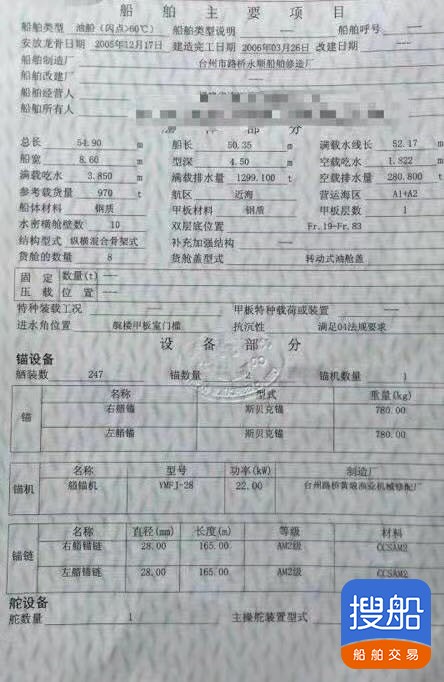 船 舶 主 要 项 目
船舶类型 油船（闪点>60℃） 船舶类型说明 —— 船舶呼号 --
安放龙骨日期 2005年12月17日 建造完工日期 2006年03月26日 改建日期 ----
船舶制造厂 台州市路桥永顺船舶修造厂
船舶改建厂 ----
船舶经营人
船舶所有人
部 分
总长 54.90 m 船长 50.35 m 满载水线长 52.17 m
船宽 8.60 m 型深 4.50 m 空载吃水 1.822 m
满载吃水 3.850 m 满载排水量 1299.100 t 空载排水量 280.800 t
参考载货量 970 t 航区 近海 营运海区 A1+A2
船体材料 钢质 甲板材料 钢质 甲板层数 1
水密横舱壁数 10 双层底位置 Fr.19-Fr.83
结构型式 纵横混合骨架式 补充加强结构 ----
货舱的数量 8 货舱盖型式 转动式油舱盖
固 定 数量(t) ----
压 载 位 置 ----
特种装载工况 ---- 甲板特种载荷或装置 ----
进水角位置 艉楼甲板室门槛 抗沉性 满足04法规要求
设 备 部 分
锚设备
舾装数 247 锚数量 2 锚机数量 1
锚 名称 型式 重量(kg)
右艏锚 斯贝克锚 780.00
左艏锚 斯贝克锚 780.00
锚机 名称 型号 功率(kW) 制造厂
艏锚机 YMFJ-28 22.00 台州路桥黄琅渔业机械修配厂
锚链 名称 直径(mm) 长度(m) 等级 材料
右艏锚链 28.00 165.00 AM2级 CCSAM2
左艏锚链 28.00 165.00 AM2级 CCSAM2
舵设备
舵数量 1 主操舵装置型式
搜船
船舶交易